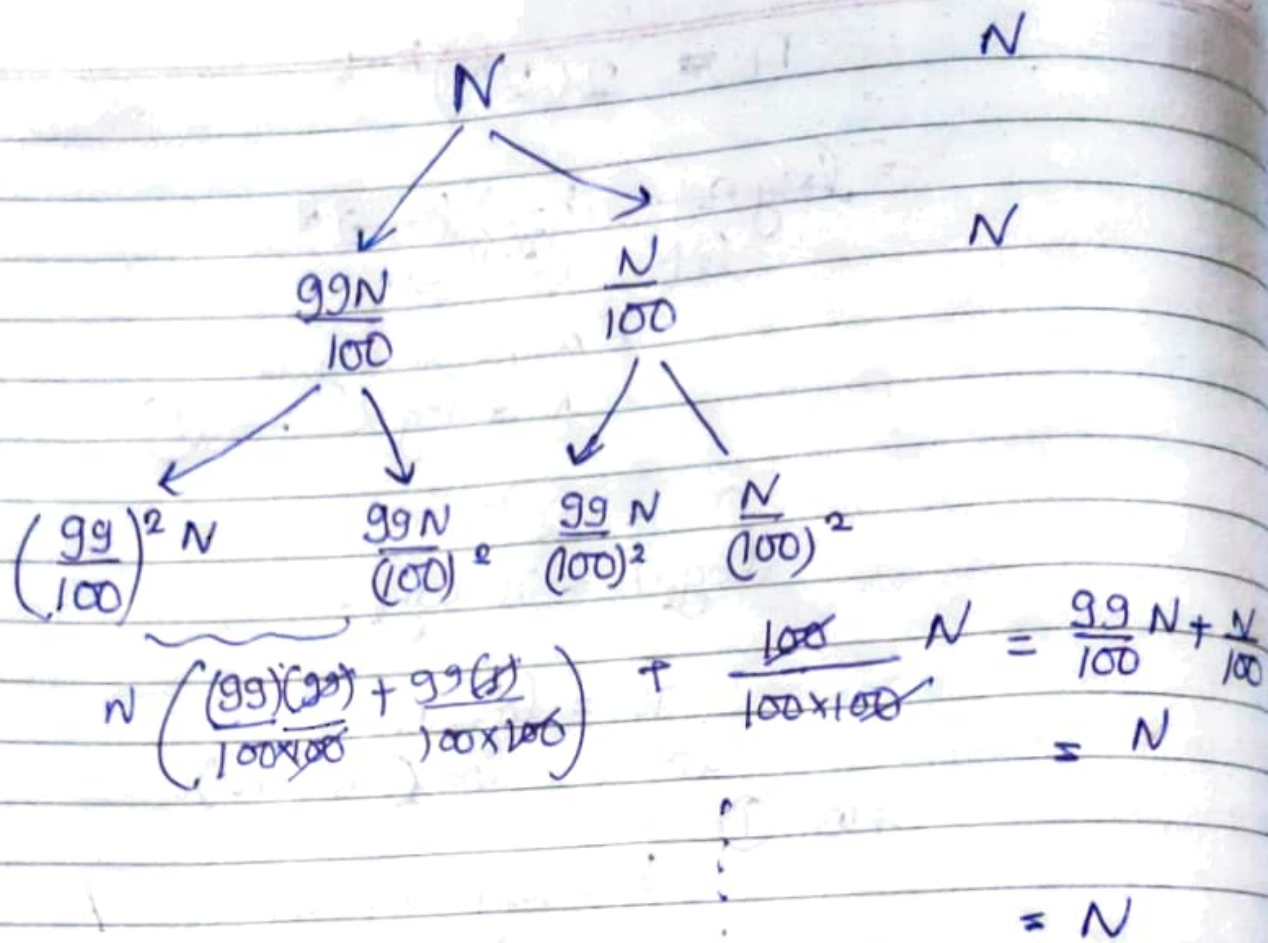 N N
99N/100 N/100 N
(99/100)² N 99N/(100)² 99 N/(100)² N/(100)²
N ( (99)(99)/100×100 + 99(1)/100×100 ) + 100/100×100 N = 99/100 N + N/100
= N
= N